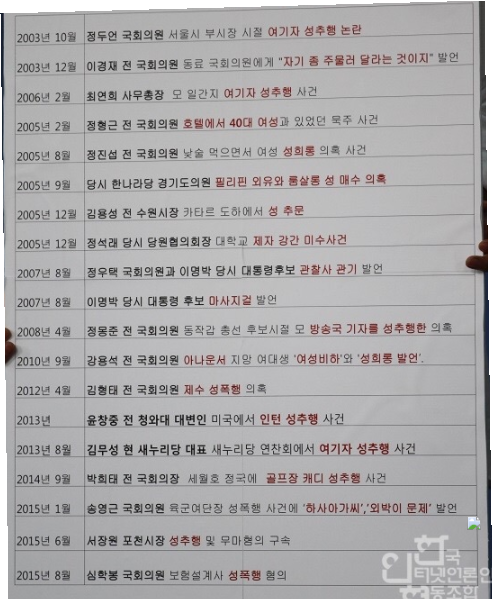 2003년 10월 정두언 국회의원 서울시 부시장 시절 여기자 성추행 논란
2003년 12월 이경재 전 국회의원 동료 국회의원에게 "자기 좀 주물러 달라는 것이지" 발언
2006년 2월 최연희 사무총장 모 일간지 여기자 성추행 사건
2005년 2월 정형근 전 국회의원 호텔에서 40대 여성과 있었던 묵주 사건
2005년 8월 정진섭 전 국회의원 낮술 먹으면서 여성 성희롱 의혹 사건
2005년 9월 당시 한나라당 경기도의원 필리핀 외유와 룸살롱 성 매수 의혹
2005년 12월 김용성 전 수원시장 카타르 도하에서 성 추문
2005년 12월 정석래 당시 당원협의회장 대학교 제자 강간 미수사건
2007년 8월 정우택 국회의원과 이명박 당시 대통령후보 관찰사 관기 발언
2007년 8월 이명박 당시 대통령 후보 마사지걸 발언
2008년 4월 정몽준 전 국회의원 동작갑 총선 후보시절 모 방송국 기자를 성추행한 의혹
2010년 9월 강용석 전 국회의원 아나운서 지망 여대생 '여성비하'와 '성희롱 발언'.
2012년 4월 김형태 전 국회의원 제수 성폭행 의혹
2013년 윤창중 전 청와대 대변인 미국에서 인턴 성추행 사건
2013년 8월 김무성 현 새누리당 대표 새누리당 연찬회에서 여기자 성추행 사건
2014년 9월 박희태 전 국회의장 세월호 정국에 골프장 캐디 성추행 사건
2015년 1월 송영근 국회의원 육군여단장 성폭행 사건에 '하사아가씨','외박이 문제' 발언
2015년 6월 서장원 포천시장 성추행 및 무마혐의 구속
2015년 8월 심학봉 국회의원 보험설계사 성폭행 혐의
한국
인터넷언론인
동조합